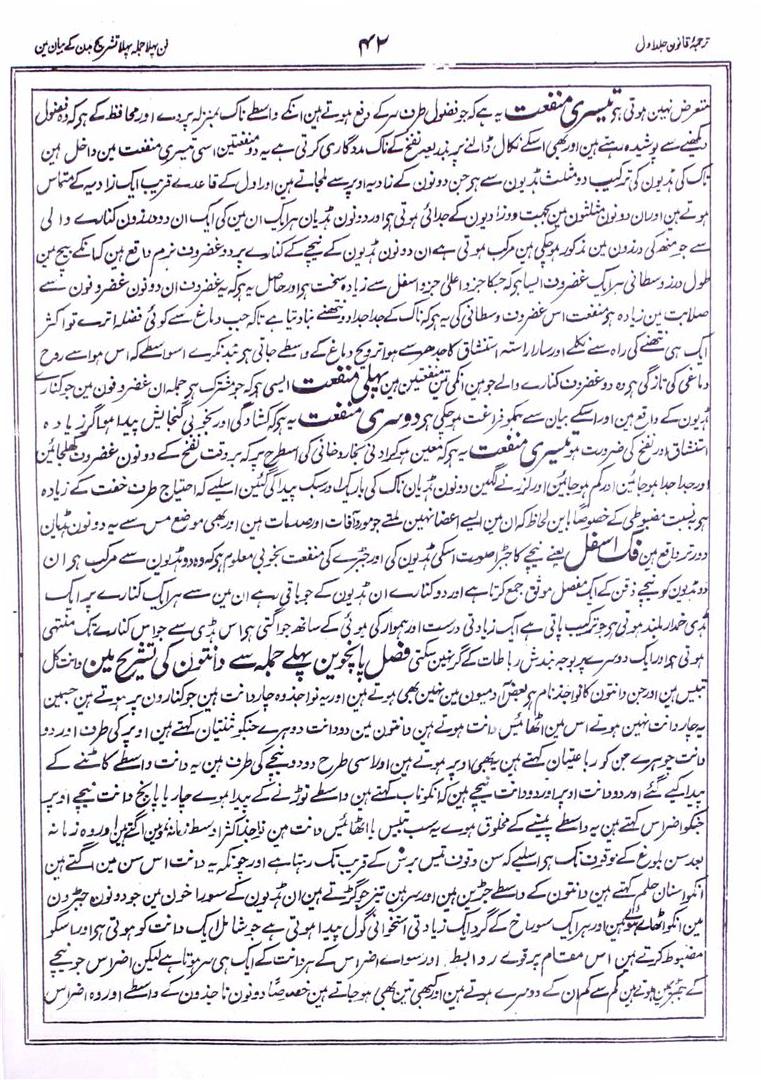 ترجمۂ قانون جلد اول
۴۲
فن پہلا جملہ پہلا تشریح بدن کے بیان مین
متعرض نہین ہوتی ہو تیسری منفعت یہ ہے کہ جو فضول طرف سر کے دفع ہوتے ہین انکے واسطے ناک بمنزلہ پردے اور محافظ کے ہو کہ وہ فضول
دیکھنے سے پوشیدہ رہتے ہین اور بھی اسکے نکال ڈالنے پر بذریعہ نفخ کے ناک مددگاری کرتی ہے یہ دو منفعتین اسی تیسری منفعت مین داخل ہین
ناک کی ہڈیون کی ترکیب دو مثلث ہڈیون سے ہو جن دونون کے زاویہ اوپر سے ملجاتے ہین اور اول کے قاعدے قریب ایک زاویہ کے متماس
ہوتے ہین اور ان دونون مثلثون مین بجہت دو زاویون کے جدائی ہوتی ہو اور دونون ہڈیان ہر ایک ان مین کی ایک ان دو درزون کنارے والی
سے جو منھ کی درزون مین مذکور ہو چکی ہین مرکب ہوتی ہے ان دونون ہڈیون کے نیچے کے کنارے پر دو غضروف نرم واقع ہین کہ انکے بیچ مین
طول درز وسطانی ہر ایک غضروف ایسا ہو کہ جسکا جزو اعلیٰ جزو اسفل سے زیادہ سخت ہو اور حاصل یہ ہو کہ یہ غضروف ان دونون غضروفون سے
صلابت مین زیادہ ہو منفعت اس غضروف وسطانی کی یہ ہو کہ ناک کے جدا جدا دو نتھنے بنا دیتا ہے تاکہ جب دماغ سے کوئی فضلہ اترے تو اکثر
ایک ہی نتھنے کی راہ سے نکلے اور سارا راستہ استنشاق کا جدھر سے ہوا ترویح دماغ کے واسطے جاتی ہو بند نکرے اسواسطے کہ اس ہوا سے روح
دماغی کی تازگی ہو وہ دو غضروف کنارے والے جو ہین انکی تین منفعتین ہین پہلی منفعت ایسی ہو کہ جو مشترک ہو جملہ ان غضروفون مین جو کنارے
ہڈیون کے واقع ہین اور اسکے بیان سے ہمکو فراغت ہو چکی ہو دوسری منفعت یہ ہو کہ کشادگی اور بخوبی گنجایش پیدا ہو اگر زیادہ
استنشاق اور نفخ کی ضرورت ہو تیسری منفعت یہ ہو کہ معین ہو کر ادنی بخار دخانی کی اسطرح پر کہ بروقت نفخ کے دونون غضروف کھلجائین
اور جدا جدا ہو جائین اور کم ہو جائین اور لرزنے لگین دونون ہڈیان ناک کی باریک اور سبک پیدا کی گئین اسلیے کہ احتیاج طرف خفت کے زیادہ
ہو بنسبت مضبوطی کے خصوصاً باین لحاظ کہ ان مین ایسے اعضا نہین ملتے جو مورد آفات اور صدمات ہین اور بھی موضع مس سے یہ دونون ہڈیان
دور تر واقع ہین فک اسفل یعنے نیچے کا جبڑا صورت اسکی ہڈیون کی اور جبڑے کی منفعت بخوبی معلوم ہو کہ وہ دو ہڈیون سے مرکب ہو ان
دو ہڈیون کو نیچے ذقن کے ایک مفصل موثق جمع کرتا ہے اور دو کنارے ان ہڈیون کے جو باقی رہے ان مین سے ہر ایک کنارے پر ایک
ہڈی خمدار بلند ہوتی ہو جو ترکیب پاتی ہے ایک زیادتی درست اور ہموار کی ہوئی کے ساتھ جو اگتی ہو اس ہڈی سے جو اس کنارے تک منتہی
ہوتی ہو اور ایک دوسرے پر بوجہ بندش رباطات کے گر نہین سکتی فصل پانچوین پہلے جملہ سے دانتون کی تشریح مین دانت کل
بتیس ہین اور جن دانتون کا نواجذ نام ہو بعض آدمیون مین نہین بھی ہوتے ہین اور یہ نواجذ وہ چار دانت ہین جو کنارون پر ہوتے ہین جسمین
یہ چار دانت نہین ہوتے اس مین اٹھائیس دانت ہوتے ہین دانتون مین دو دانت دوہرے جنکو ثنیتان کہتے ہین اوپر کی طرف اور دو
دانت جوہرے جن کو رباعیتان کہتے ہین یہ بھی اوپر ہوتے ہین اور اسی طرح دو دو نیچے کی طرف ہین یہ دانت واسطے کاٹنے کے
پیدا کیے گئے اور دو دانت اوپر اور دو دانت نیچے ہین کہ انکو ناب کہتے ہین واسطے توڑنے کے پیدا ہوے چار یا پانچ دانت نیچے اوپر
جنکو اضراس کہتے ہین یہ واسطے پیسنے کے مخلوق ہوے یہ سب بتیس یا اٹھائیس دانت ہین نواجذ اکثر اوسط زمانۂ نمو مین اگتے ہین اور وہ زمانہ
بعد سن بلوغ کے وقوف تک ہو اسلیے کہ سن وقوف تیس برس کے قریب تک رہتا ہے اور چونکہ یہ دانت اس سن مین اگتے ہین
انکو اسنان حلم کہتے ہین دانتون کے واسطے جڑین ہین اور سر ہین تیز جو گڑتے ہین ان ہڈیون کے سوراخون مین جو دونون جبڑون
مین انکو اٹھائے ہوئے ہین اور ہر ایک سوراخ کے گرد ایک زیادتی استخوانی گول پیدا ہوتی ہے جو شامل ایک دانت کو ہوتی ہو اور اسکو
مضبوط کرتے ہین اس مقام پر قوے روابط اور سواے اضراس کے ہر دانت کے ایک ہی سر ہوتا ہے لیکن اضراس جو نیچے
کے جبڑے مین ہوتے ہین کم سے کم ان کے دو سرے ہوتے ہین اور کبھی تین بھی ہو جاتے ہین خصوصاً دونون ناجذون کے واسطے اور وہ اضراس